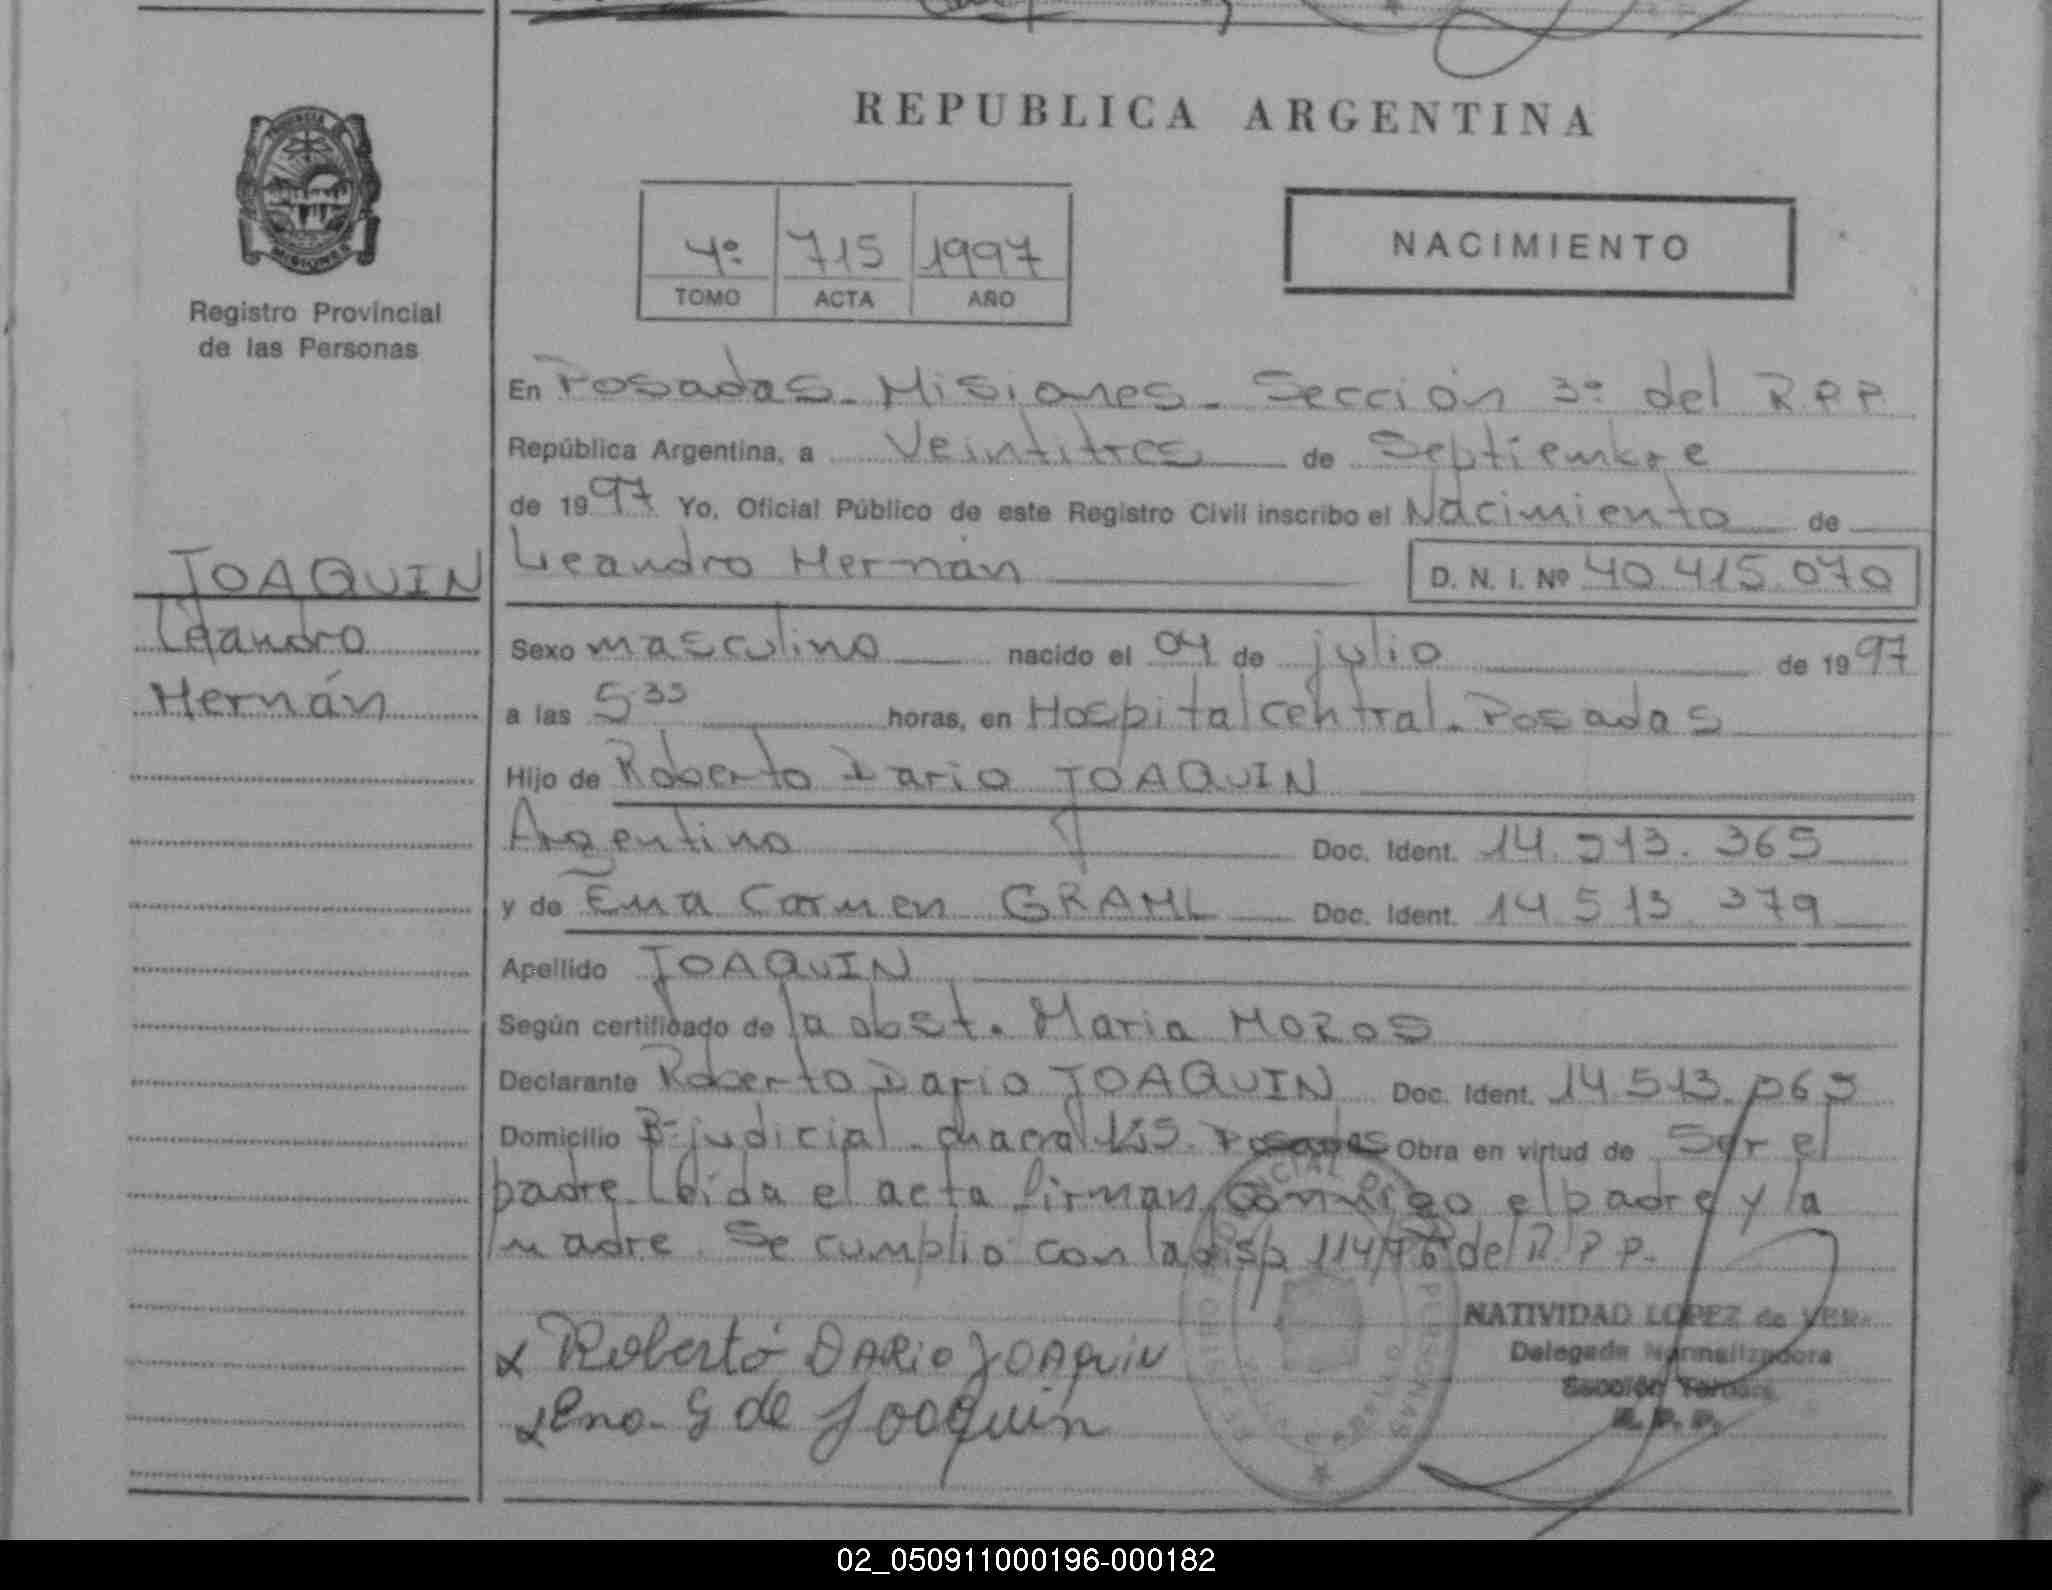 REPUBLICA ARGENTINA
PROVINCIA DE
MISIONES
Registro Provincial
de las Personas
4º 715 1997
TOMO ACTA AÑO
NACIMIENTO
En Posadas - Misiones - Sección 3º del R.P.P.
República Argentina, a Veintitres de Septiembre
de 1997 Yo, Oficial Público de este Registro Civil inscribo el Nacimiento de
Leandro Hernán D. N. I. Nº 40.415.070
JOAQUIN
Leandro
Hernán
Sexo masculino nacido el 04 de julio de 1997
a las 5 35 horas, en Hospital central - Posadas
Hijo de Roberto Dario JOAQUIN
Argentino Doc. Ident. 14.513.365
y de Ena Carmen GRAHL Doc. Ident. 14.513.379
Apellido JOAQUIN
Según certificado de la obst. Maria MOROS
Declarante Roberto Dario JOAQUIN Doc. Ident. 14.513.365
Domicilio Bº judicial - chacra Posadas Obra en virtud de Ser el
padre Leida el acta firman conmigo el padre y la
madre. Se cumplio con la disp. 114/76 del R.P.P.
NATIVIDAD LOPEZ de VERA
Delegada Normalizadora
Sección Tercera
R. P. P.
x Roberto DARIO JOAQUIN
x Ena G de Joaquin
02_050911000196-000182